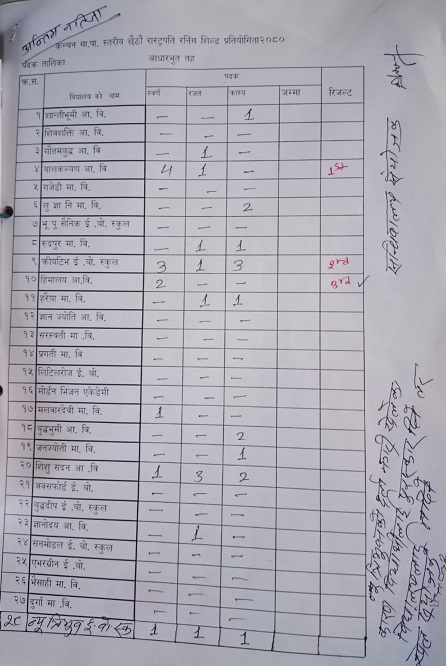 अन्तिम नतिजा
कन्चन गा.पा. स्तरीय छैटौं राष्ट्रपति रनिंग शिल्ड प्रतियोगिता२०८०
पदक तालिका आधारभुत तह
क्र.स. विद्यालय को नाम पदक रिजल्ट
स्वर्ण रजत कास्य जम्मा
१ शान्तीभुमी आ. वि. — — 1
२ शिवशक्ति आ. वि. — — —
३ गौतमबुद्ध आ. वि. — 1 —
४ बालकल्याण आ. वि. 4 1 — 1st
५ गजेडी मा. वि. — — —
६ लु ज्ञा नि मा. वि. — — 2
७ भू पू सैनिक ई .बो. स्कुल — — —
८ रुद्रपुर मा. वि. — 1 1
९ कीयटिभ ई .बो. स्कुल 3 1 3 2nd
१० हिमालय आ.वि. 2 — — 3rd ✓
११ हरैया मा. वि. — 1 1
१२ ज्ञान ज्योति आ. वि. — — —
१३ सरस्वती मा .वि. — — —
१४ प्रगती मा. वि — — —
१५ लिटिलरोज ई. बो. — — —
१६ मोर्डन भिजन एकेडेमी — — —
१७ मलवारदेवी मा. वि. 1 — —
१८ बुद्धभुमी आ. वि. — — 2
१९ जनज्योती मा. वि. — — 1
२० शिशु सदन आ .वि 1 3 2
२१ अक्सफोर्ड ई. बो. — — —
२२ बुद्धदीप ई .बो. स्कुल — — —
२३ ज्ञानोदय आ. वि. — 1 —
२४ सनमोडल ई. बो. स्कुल — — —
२५ एभरग्रीन ई .बो. — — —
२६ भैसाही मा. वि. — — —
२७ दुर्गा मा .वि. — — —
२८ न्यू त्रिभुव ई. बो. स्कू 1 1 1